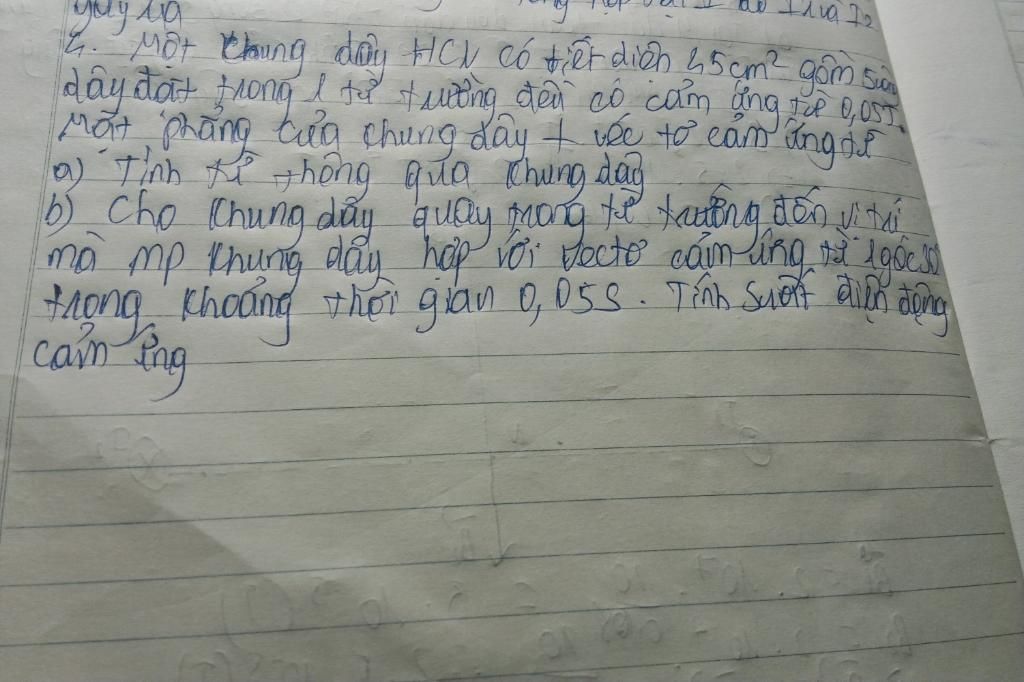 quy là
4. Một khung dây HCN có tiết diện 45cm² gồm
dây đặt trong 1 từ trường đều có cảm ứng từ 0,05T.
Mặt phẳng của khung dây ⊥ véc tơ cảm ứng từ
a) Tính từ thông qua khung dây
b) Cho khung dây quay trong từ trường đến vị trí
mà mp khung dây hợp với vectơ cảm ứng từ 1 góc
trong khoảng thời gian 0,05s. Tính suất điện động
cảm ứng